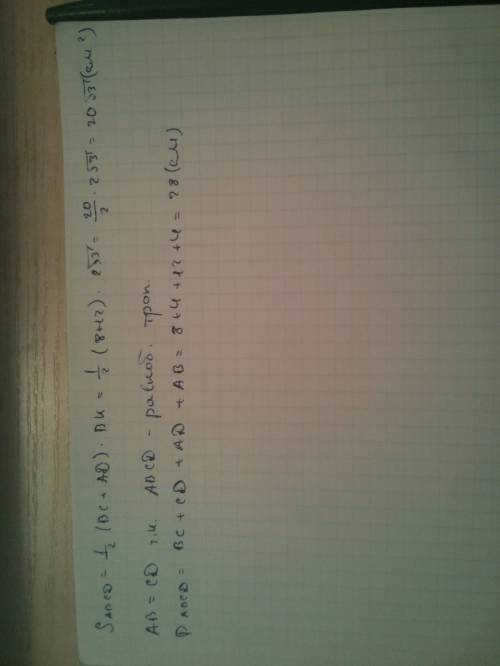 S ABCD = 1/2 (BC + AD) · BK = 1/2 (8+12) · 2√3 = 20/2 · 2√3 = 20√3 (см²)
AB = CD т.к. ABCD - равноб. трап.
P ABCD = BC + CD + AD + AB = 8 + 4 + 12 + 4 = 28 (см)